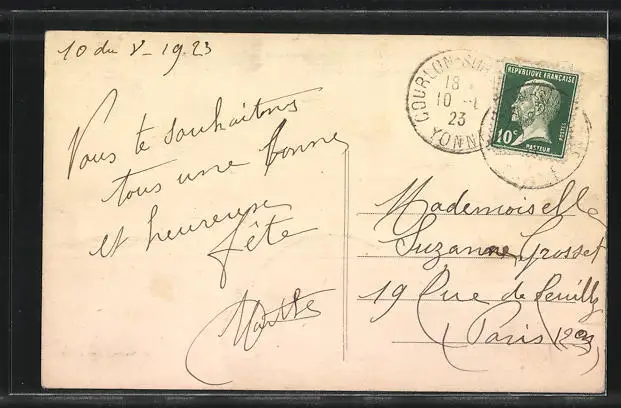 10 du V - 1923
Nous te souhaitons
tous une bonne
et heureuse
fête
COURLON-SUR
18
10
23
YONNE
REPUBLIQUE FRANÇAISE
10c
POSTES
PASTEUR
Mademoiselle
Suzanne Grosset
19 Rue de
Paris 12